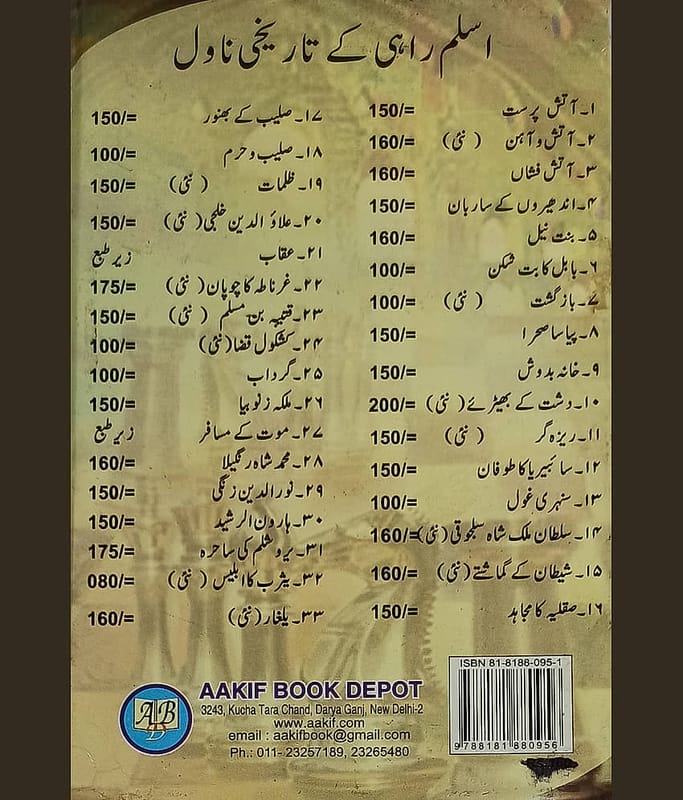 اسلم راہی کے تاریخی ناول
۱۔ آتش پرست 150/=
۲۔ آتش و آہن (نئی) 160/=
۳۔ آتش فشاں 160/=
۴۔ اندھیروں کے ساربان 150/=
۵۔ بنت نیل 160/=
۶۔ بابل کا بت شکن 100/=
۷۔ بازگشت (نئی) 100/=
۸۔ پیاسا صحرا 150/=
۹۔ خانہ بدوش 150/=
۱۰۔ دشت کے بھیڑئے (نئی) 200/=
۱۱۔ ریزہ گر (نئی) 150/=
۱۲۔ سائبیریا کا طوفان 150/=
۱۳۔ سنہری غول 100/=
۱۴۔ سلطان ملک شاہ سلجوقی (نئی) 160/=
۱۵۔ شیطان کے گماشتے (نئی) 160/=
۱۶۔ صقلیہ کا مجاہد 150/=
۱۷۔ صلیب کے بھنور 150/=
۱۸۔ صلیب و حرم 100/=
۱۹۔ ظلمات (نئی) 150/=
۲۰۔ علاؤ الدین خلجی (نئی) 150/=
۲۱۔ عقاب زیر طبع
۲۲۔ غرناطہ کا چوپان (نئی) 175/=
۲۳۔ قتیبہ بن مسلم (نئی) 150/=
۲۴۔ کشکول قضا (نئی) 100/=
۲۵۔ گرداب 100/=
۲۶۔ ملکہ زنوبیا 150/=
۲۷۔ موت کے مسافر زیر طبع
۲۸۔ محمد شاہ رنگیلا 160/=
۲۹۔ نورالدین زنگی 150/=
۳۰۔ ہارون الرشید 150/=
۳۱۔ یروشلم کی ساحرہ 175/=
۳۲۔ یثرب کا ابلیس (نئی) 080/=
۳۳۔ یلغار (نئی) 160/=
ABD
AAKIF BOOK DEPOT
3243, Kucha Tara Chand, Darya Ganj, New Delhi-2
www.aakif.com
email : aakifbook@gmail.com
Ph.: 011- 23257189, 23265480
ISBN 81-8188-095-1
9 788181 880956